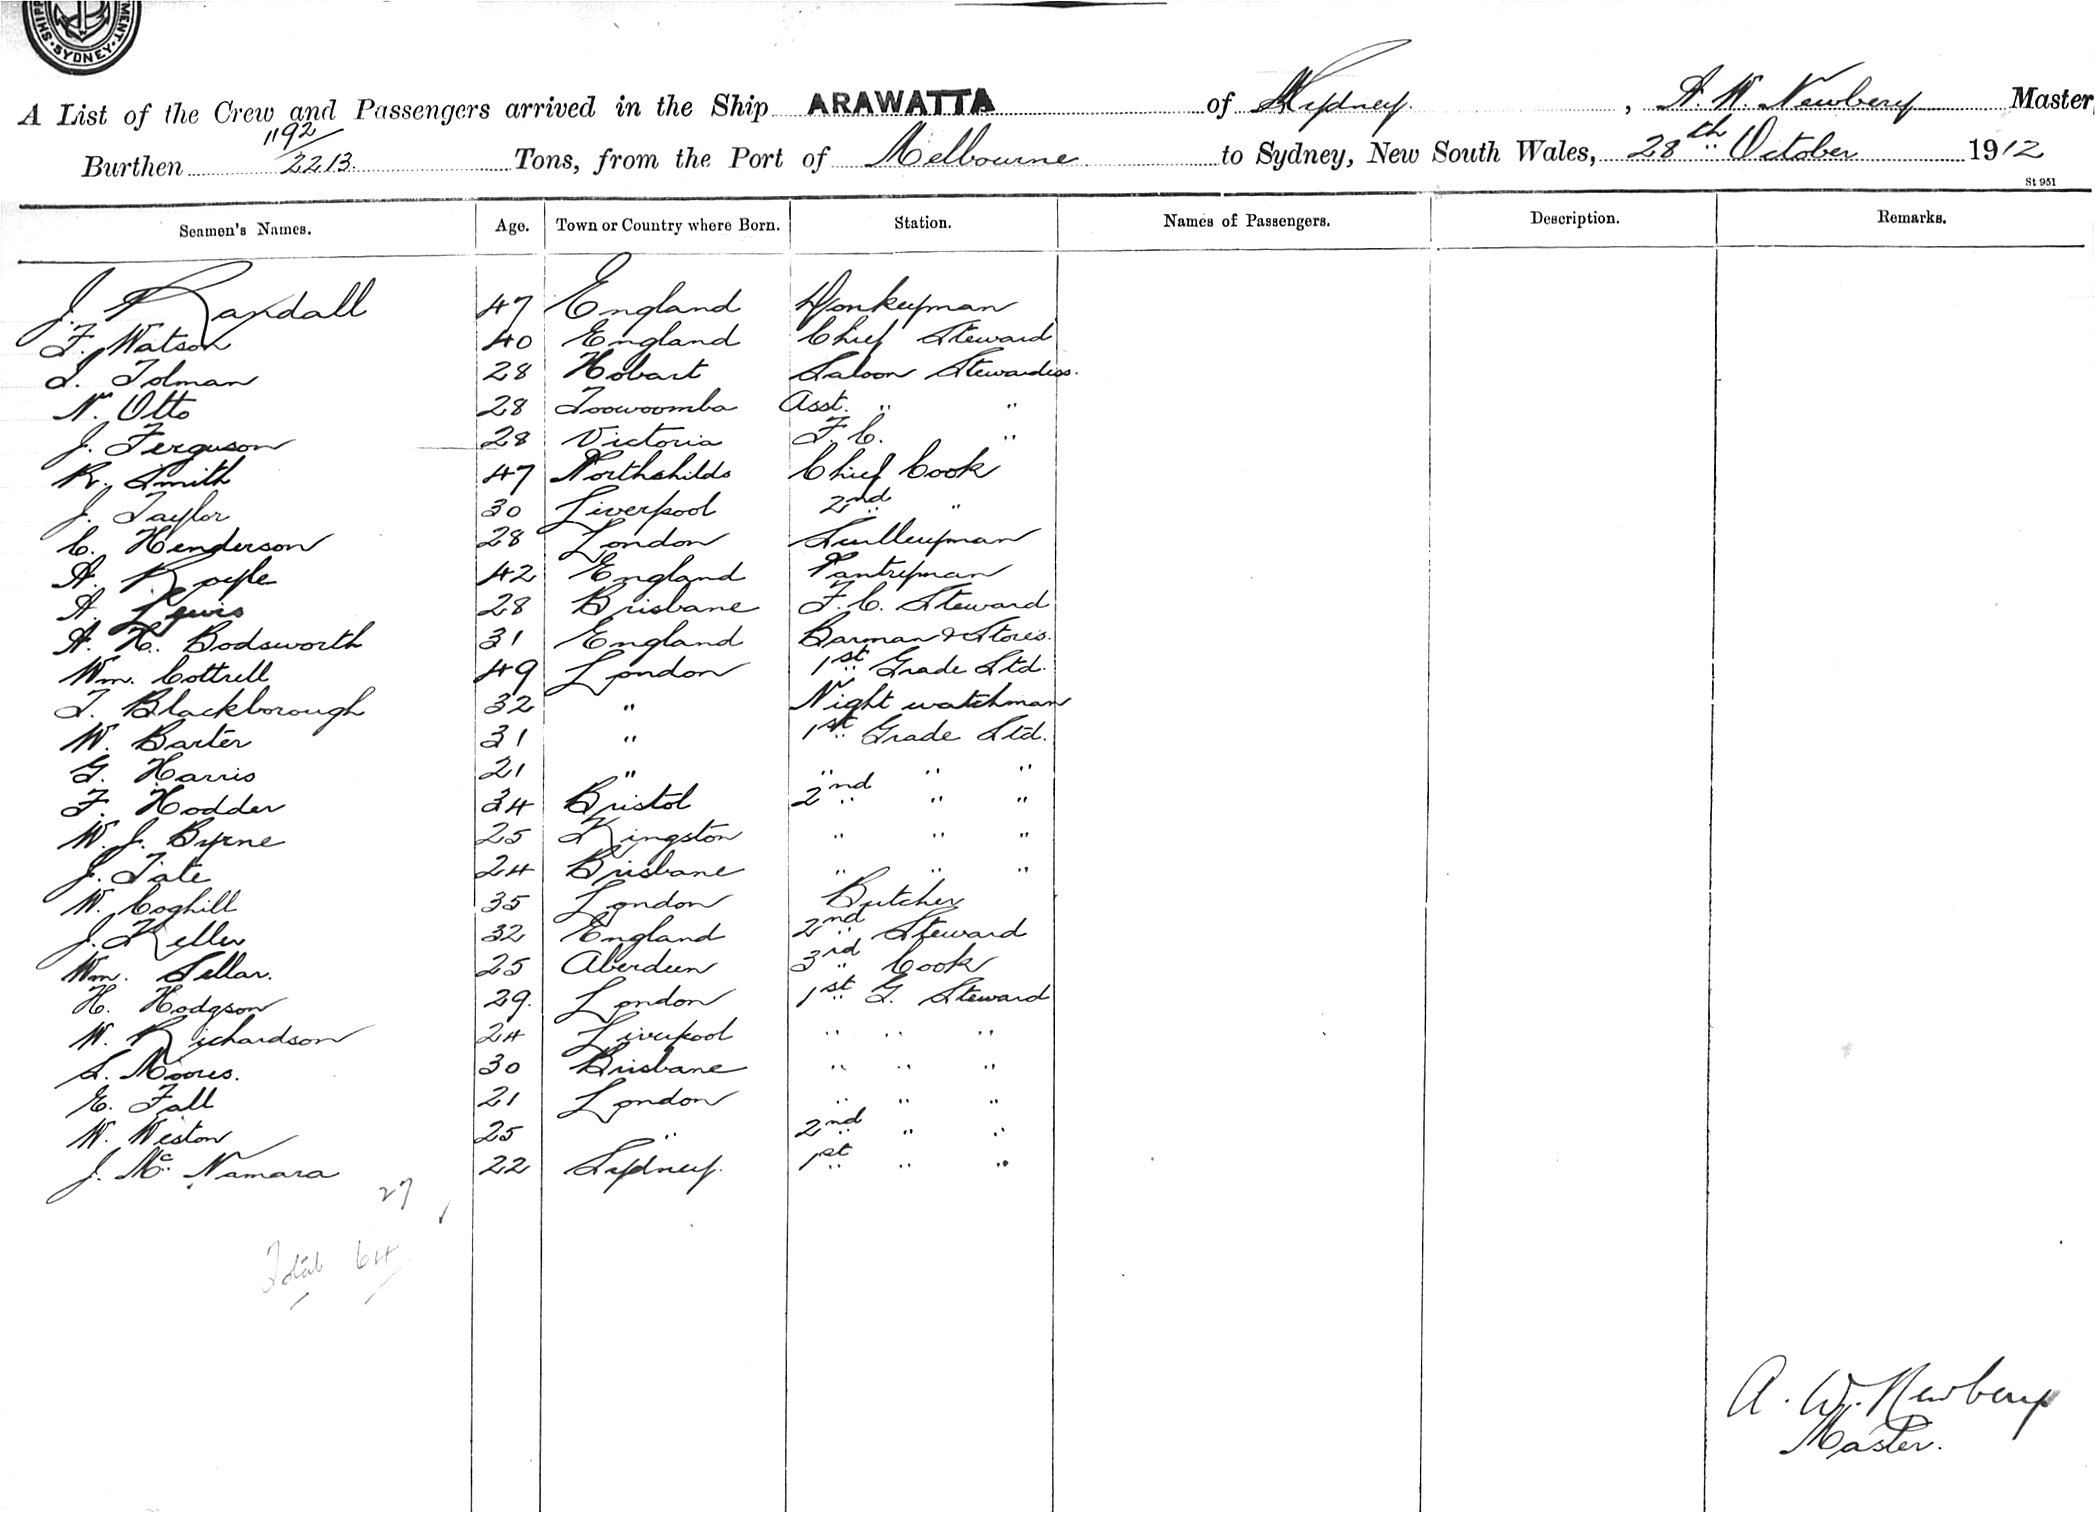 SHIPP MENT · SYDNEY ·
A List of the Crew and Passengers arrived in the Ship ARAWATTA of Sydney, A. W. Newbery Master,
Burthen 1192/2213 Tons, from the Port of Melbourne to Sydney, New South Wales, 28th October 1912
St 951
Seamen's Names. Age. Town or Country where Born. Station. Names of Passengers. Description. Remarks.
J. Randall 47 England Donkeyman
F. Watson 40 England Chief Steward
L. Tolman 28 Hobart Saloon Stewardess.
N. Otto 28 Toowoomba Asst. " "
J. Ferguson 28 Victoria F. C. "
R. Smith 47 Northshilds Chief Cook
J. Taylor 30 Liverpool 2nd "
C. Henderson 28 London Sculleryman
A. 42 England Pantryman
A. Lewis 28 Brisbane F. C. Steward
A. H. Bodsworth 31 England Barman & Stores.
Wm. Cottrell 49 London 1st Grade Std.
T. Blackborough 32 " Night watchman
W. Barter 31 " 1st Grade Std.
G. Harris 21 " " " "
F. Hodder 34 Bristol 2nd " "
W. J. Byrne 25 Kingston " " "
J. Tate 24 Brisbane " " "
W. Coghill 35 London Butcher
J. Keller 32 England 2nd Steward
Wm. Sellar. 25 Aberdeen 3rd Cook
H. Hodgson 29. London 1st G. Steward
W. Richardson 24 Liverpool " " "
S. Moores. 30 Brisbane " " "
E. Fall 21 London " " "
W. Weston 25 " 2nd " "
J. McNamara 22 Sydney. 1st " "
27
Total 64
A. W. Newbery
Master.